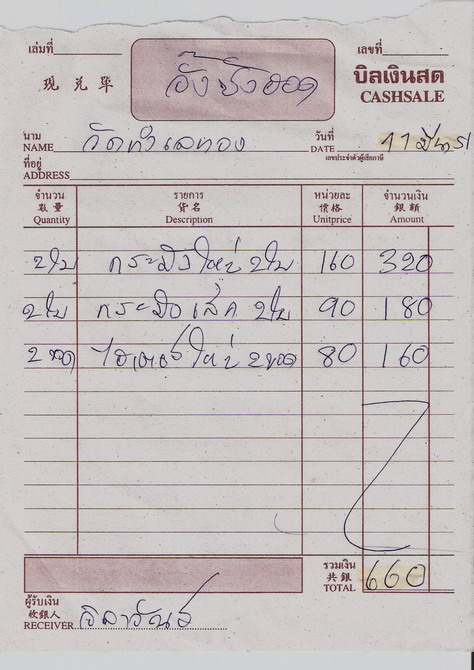 เล่มที่ เลขที่
現兌單 บิลเงินสด
CASHSALE
นาม วันที่
NAME วัดทำเลทอง DATE 11 มีค 51
เลขประจำตัวผู้เสียภาษี
ที่อยู่
ADDRESS
จำนวน รายการ หน่วยละ จำนวนเงิน
數量 貨名 價格 銀額
Quantity Description Unitprice Amount
2ใบ กระมังใหญ่ 2ใบ 160 320
2ใบ กระมังเล็ก 2ใบ 90 180
2ขวด ใหญ่ 2ขวด 80 160
รวมเงิน
共銀
TOTAL 660
ผู้รับเงิน
收銀人
RECEIVER